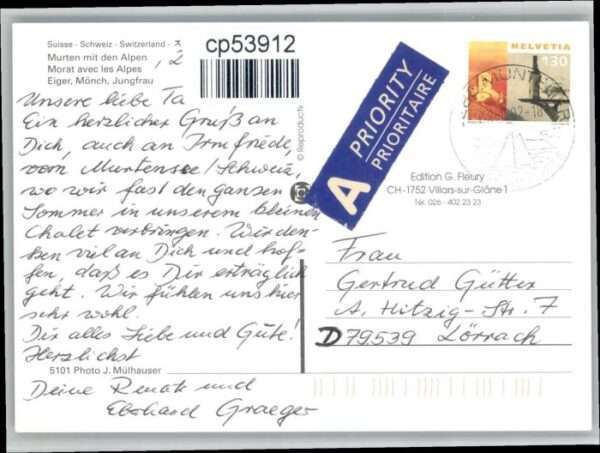 Suisse - Schweiz - Switzerland
Murten mit den Alpen
Morat avec les Alpes
Eiger, Mönch, Jungfrau
cp53912
HELVETIA
130
A PRIORITY
PRIORITAIRE
© Reproducta
Unsere liebe Ta
Ein herzlicher Gruß an
Dich, auch an Irmfriede,
vom Murtensee/Schweiz,
wo wir fast den ganzen
Sommer in unserem kleinen
Chalet verbringen. Wir den-
ken viel an Dich und hof-
fen, daß es Dir erträglich
geht. Wir fühlen uns hier
sehr wohl.
Dir alles Liebe und Gute!
Herzlichst
5101 Photo J. Mülhauser
Deine Renate und
Eberhard Graeger
Edition G. Fleury
CH-1752 Villars-sur-Glâne 1
Tél. 026 - 402 23 23
Frau
Gertrud Gütter
A. Hitzig-Str. 7
D 79539 Lörrach